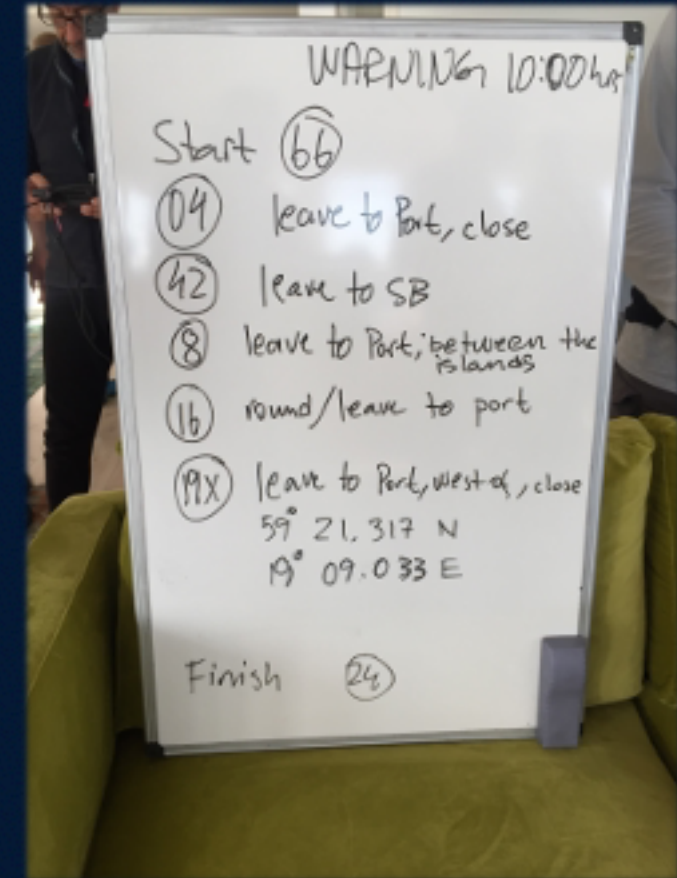 WARNING 10:00 hrs
Start 66
04 leave to Port, close
42 leave to SB
8 leave to Port, between the
islands
16 round/leave to port
19X leave to Port, west of, close
59° 21.317 N
19° 09.033 E
Finish 24